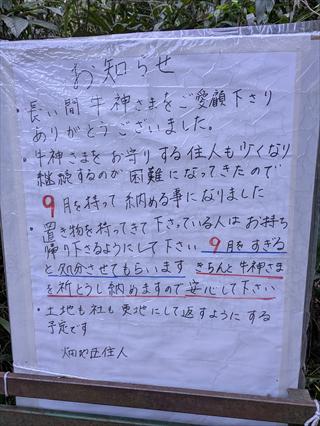 お知らせ
・長い間牛神さまをご愛顧下さり
ありがとうございました。
・牛神さまをお守りする住人も少くなり
継続するのが困難になってきたので
9月を持って納める事になりました
・置き物を持ってきて下さっている人はお持ち
帰り下さるようにして下さい 9月をすぎる
と処分させてもらいます きちんと牛神さま
を祈とうし納めますので安心して下さい
・土地も社も更地にして返すようにする
予定です
畑地区住人